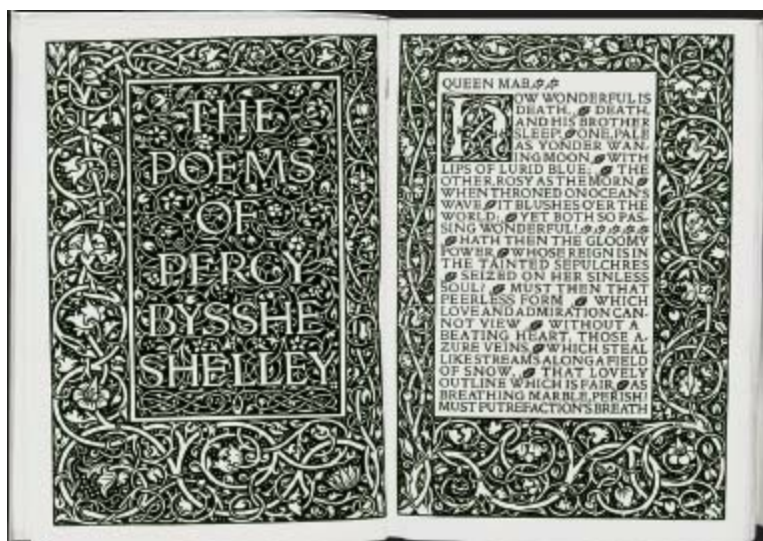 THE
POEMS
OF
PERCY
BYSSHE
SHELLEY
QUEEN MAB.
HOW WONDERFUL IS
DEATH, DEATH,
AND HIS BROTHER
SLEEP! ONE, PALE
AS YONDER WAN-
ING MOON, WITH
LIPS OF LURID BLUE; THE
OTHER, ROSY AS THE MORN
WHEN THRONED ON OCEAN'S
WAVE IT BLUSHES O'ER THE
WORLD: YET BOTH SO PAS-
SING WONDERFUL!
HATH THEN THE GLOOMY
POWER WHOSE REIGN IS IN
THE TAINTED SEPULCHRES
SEIZED ON HER SINLESS
SOUL? MUST THEN THAT
PEERLESS FORM WHICH
LOVE AND ADMIRATION CAN-
NOT VIEW WITHOUT A
BEATING HEART, THOSE A-
ZURE VEINS WHICH STEAL
LIKE STREAMS ALONG A FIELD
OF SNOW, THAT LOVELY
OUTLINE WHICH IS FAIR AS
BREATHING MARBLE, PERISH?
MUST PUTREFACTION'S BREATH